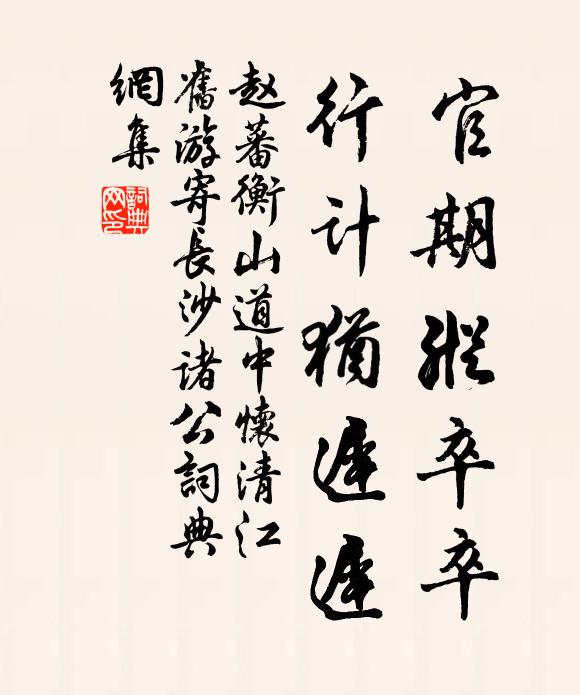 官期纵卒卒
行計猶遲遲
赵蕃衡山道中懷清江
舊游寄長沙諸公詞典
網集
詞典
网